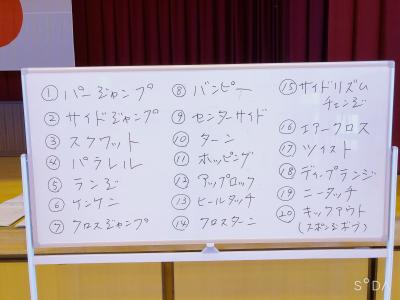 ① パージャンプ
② サイドジャンプ
③ スクワット
④ パラレル
⑤ ランジ
⑥ ケンケン
⑦ クロスジャンプ
⑧ バンピー
⑨ センターサイド
⑩ ターン
⑪ ホッピング
⑫ アップロック
⑬ ヒールタッチ
⑭ クロスターン
⑮ サイドリズム
チェンジ
⑯ エアークロス
⑰ ツイスト
⑱ ディープランジ
⑲ ニータッチ
⑳ キックアウト
(スポンジボブ)
SODA